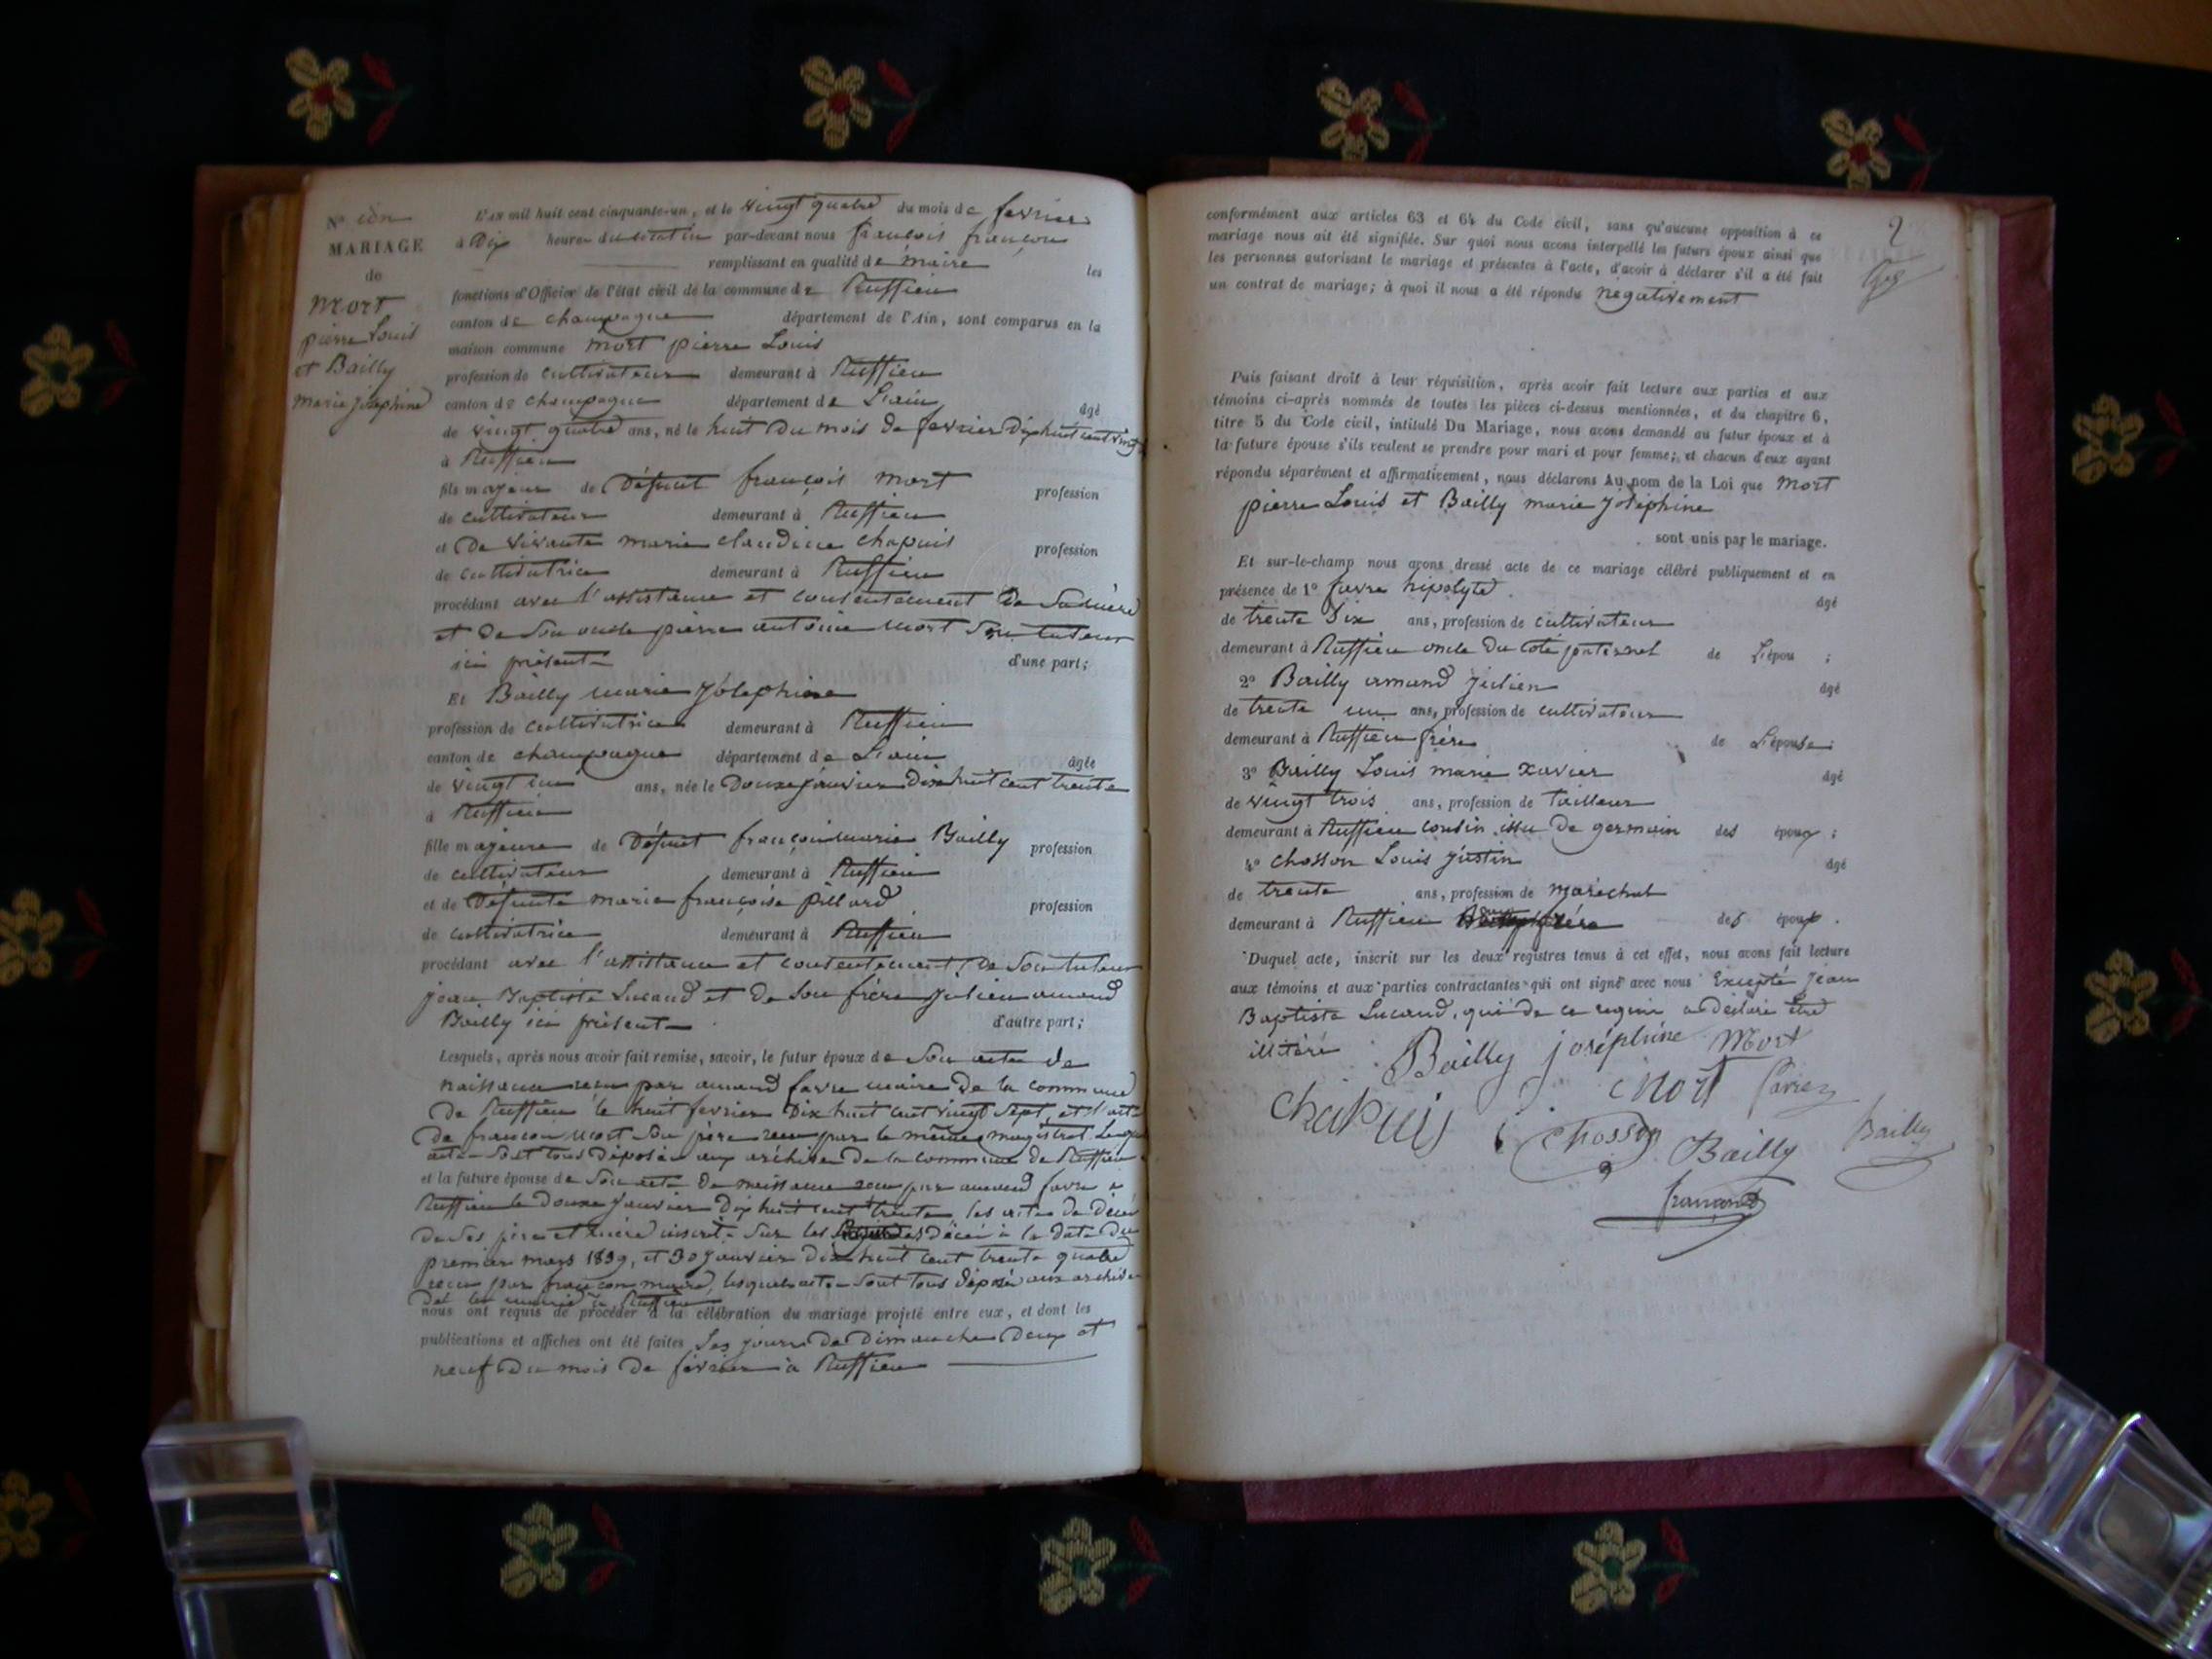 N° un
MARIAGE
de
Mort
pierre Louis
et Bailly
marie joséphine
L'AN mil huit cent cinquante-un, et le vingt quatre du mois de fevrier
à Dix heures du matin par-devant nous françois françon
remplissant en qualité de maire les
fonctions d'Officier de l'état civil de la commune de Ruffieu
canton de champagne département de l'Ain, sont comparus en la
maison commune mort pierre Louis
profession de cultivateur demeurant à Ruffieu
canton de champagne département de L'ain âgé
de vingt quatre ans, né le huit Du mois de fevrier Dix huit cent vingt
à Ruffieu
fils majeur de Défunt françois mort profession
de cultivateur demeurant à Ruffieu
et De vivante marie claudine chapuis profession
de cultivatrice demeurant à Ruffieu
procédant avec l'assistance et consentement De Sa mère
et de Son oncle pierre antoine mort Son tuteur
ici présent d'une part;
Et Bailly marie joséphine
profession de cultivatrice demeurant à Ruffieu
canton de champagne département de L'ain âgée
de vingt un ans, née le Douze janvier Dix huit cent trente
à Ruffieu
fille majeure de Défunt françoi marie Bailly profession
de cultivateur demeurant à Ruffieu
et de Défunte marie françoise pillard profession
de cultivatrice demeurant à Ruffieu
procédant avec l'assistance et consentement De Son tuteur
jean Baptiste Lucand et de Son frère julien amand
Bailly ici présent d'autre part;
Lesquels, après nous avoir fait remise, savoir, le futur époux de Son acte de
naissance reçu par amand favre maire De la commune
De Ruffieu le huit fevrier Dix huit cent vingt Sept, et l'acte
De françon mort Son père reçu par le même magistrat
acte Sont tous Déposés aux archives De la commune De Ruffieu
et la future épouse de Son acte De naissance reçu par amand favre a
Ruffieu le Douze janvier Dix huit cent trente, les actes De Décès
De Ses père et mère inscrit Sur les Décès à la date Du
premier mars 1839, et 30 janvier Dix huit cent trente quatre
reçu par françon maire, lesquels acte Sont tous Déposés aux archives
De la mairie De Ruffieu
nous ont requis de procéder à la célébration du mariage projeté entre eux, et dont les
publications et affiches ont été faites Les jours De Dimanche Deux et
neuf Du mois De février à Ruffieu
2
conformément aux articles 63 et 64 du Code civil, sans qu'aucune opposition à ce
mariage nous ait été signifiée. Sur quoi nous avons interpellé les futurs époux ainsi que
les personnes autorisant le mariage et présentes à l'acte, d'avoir à déclarer s'il a été fait
un contrat de mariage; à quoi il nous a été répondu negativement
Puis faisant droit à leur réquisition, après avoir fait lecture aux parties et aux
témoins ci-après nommés de toutes les pièces ci-dessus mentionnées, et du chapitre 6,
titre 5 du Code civil, intitulé Du Mariage, nous avons demandé au futur époux et à
la future épouse s'ils veulent se prendre pour mari et pour femme; et chacun d'eux ayant
répondu séparément et affirmativement, nous déclarons Au nom de la Loi que Mort
pierre Louis et Bailly marie joséphine
sont unis par le mariage.
Et sur-le-champ nous avons dressé acte de ce mariage célébré publiquement et en
présence de 1° favre hipolyte âgé
de trente Six ans, profession de cultivateur
demeurant à Ruffieu oncle Du coté paternel de L'épou ;
2° Bailly amand julien âgé
de trente un ans, profession de cultivateur
demeurant à Ruffieu frère de L'épouse;
3° Bailly Louis marie xavier âgé
de vingt trois ans, profession de Tailleur
demeurant à Ruffieu cousin issu De germain des époux ;
4° chosson Louis justin âgé
de trente ans, profession de maréchal
demeurant à Ruffieu des époux .
Duquel acte, inscrit sur les deux registres tenus à cet effet, nous avons fait lecture
aux témoins et aux parties contractantes qui ont signé avec nous Excepté jean
Baptiste Lucand, qui de ce requis a Déclaré être
illitéré
Bailly joséphine Mort
Mort
chapuis
chosson Bailly Bailly
françon